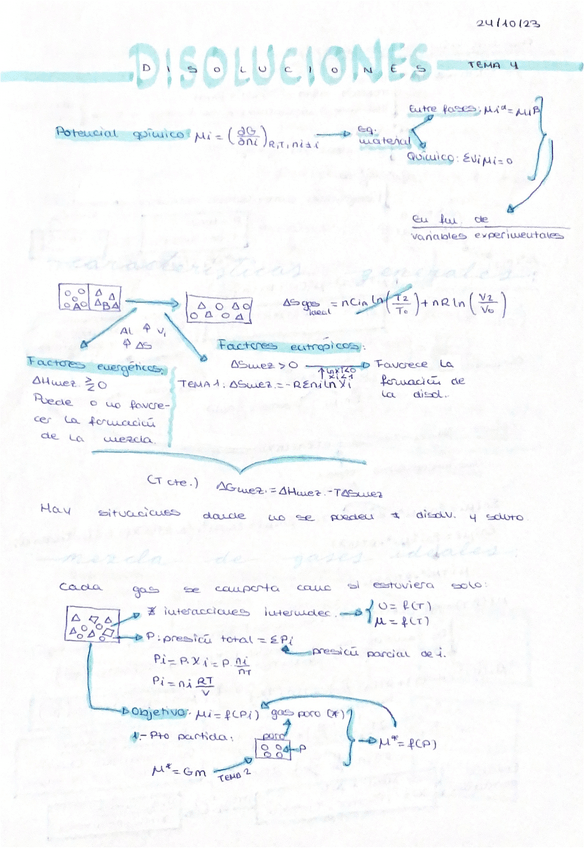 24/10/23
DISOLUCIONES
DISOLUCIONES TEMA 4
Potencial químico: μi = (∂G/∂ni)R,T,nj≠i → Eq. material
Entre fases: μiα = μiβ
Químico: Σνiμi = 0
En fun. de
variables experimentales
características generales
ΔSgas ideal = nCm ln(T2/T0) + nR ln(V2/V0)
Al ↑ Vi
↑ ΔS
Factores energéticos:
ΔHmez ≷ 0
Puede o no favore-
cer la formación
de la mezcla.
Factores entrópicos:
ΔSmez > 0 → Favorece la
formación de
la disol.
ln xi < 0
xi < 1
TEMA 1: ΔSmez = -RΣni ln Xi
(T cte.) ΔGmez. = ΔHmez. - TΔSmez
Hay situaciones donde no se pueden disolv. y soluto
mezcla de gases ideales
Cada gas se comporta como si estuviera solo:
∄ interacciones intermolec. → U = f(T)
μ = f(T)
P: presión total = ΣPi
presión parcial de i.
Pi = P. Xi = P. ni/nT
Pi = ni RT/V
Objetivo: μi = f(Pi) gas puro (*)
1.- Pto partida: puro
P
μ* = f(P)
μ* = Gm TEMA 2